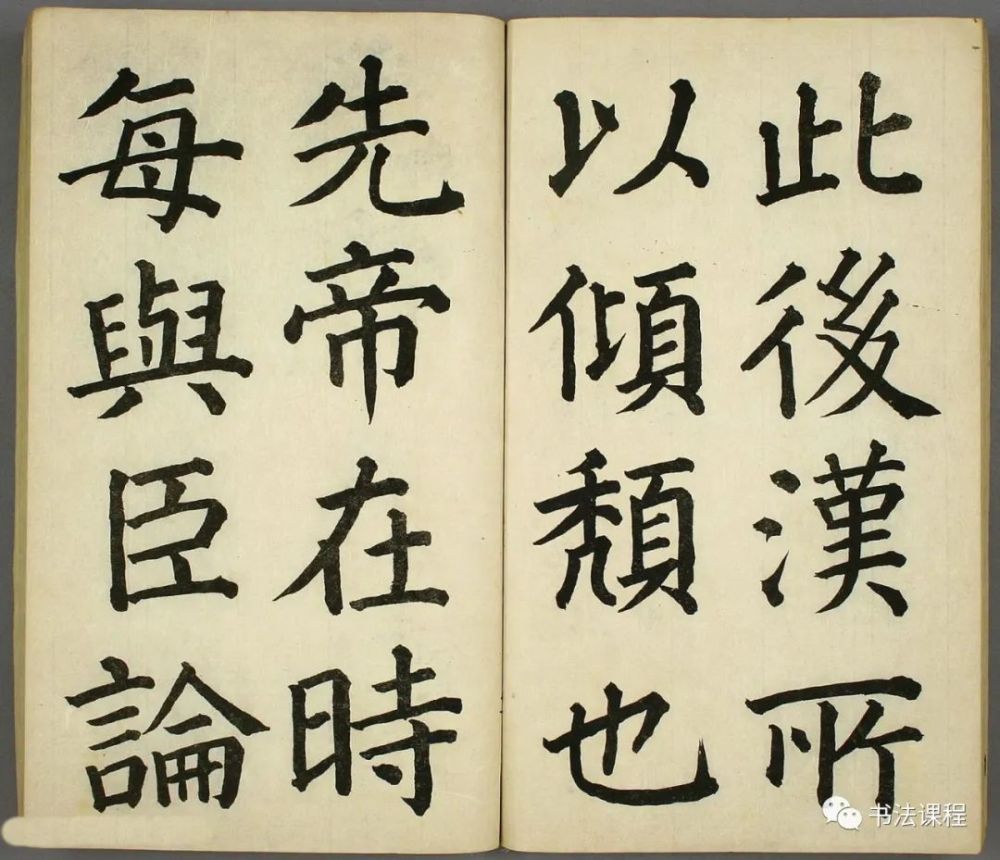 此後漢所
以傾頹也
先帝在時
每與臣論
书法课程